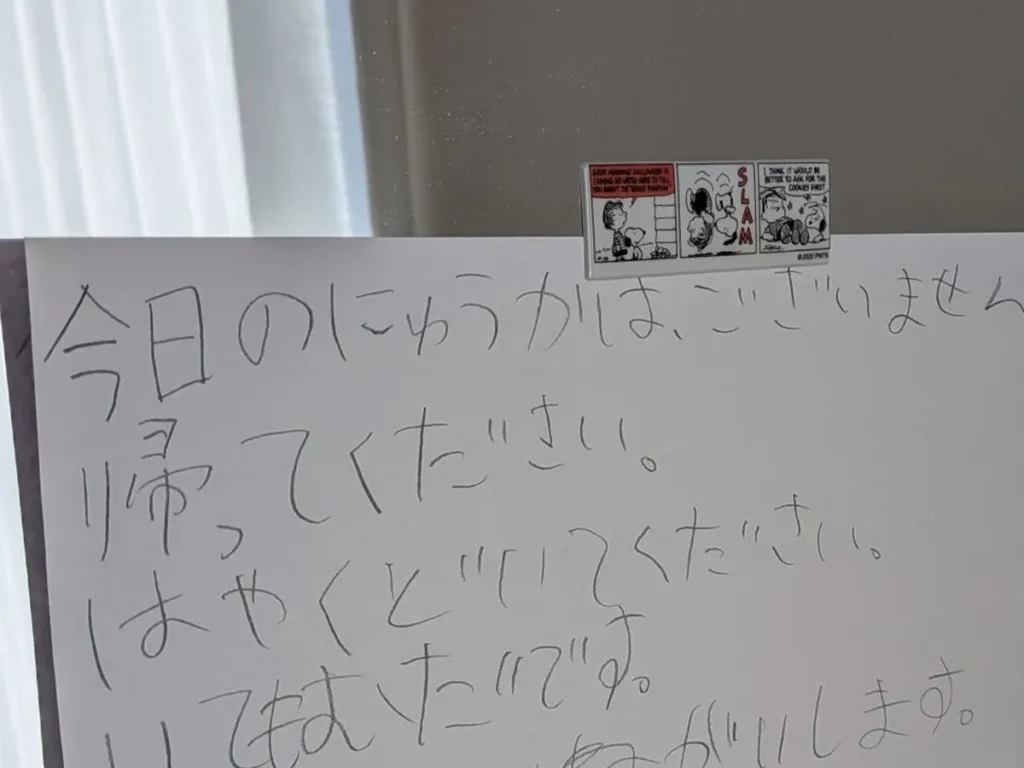 GOOD MORNING! HALLOWEEN IS
COMING SO WE'RE HERE TO TELL
YOU ABOUT THE "GREAT PUMPKIN"
SLAM
I THINK IT WOULD BE
BETTER TO ASK FOR THE
COOKIES FIRST
©2020 PNTS
今日のにゅうかは、ございません
帰ってください。
はやくどいてください。
いてもむだです。
ねがいします。